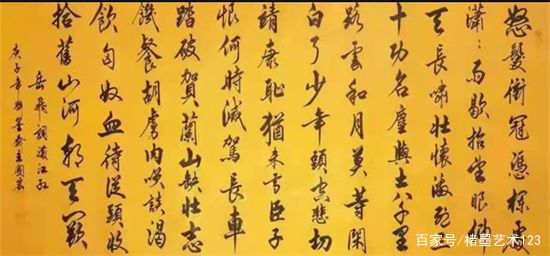 怒髮衝冠憑欄處
瀟〻雨歇抬望眼仰
天長嘯壯懷激烈三
十功名塵與土八千里
路雲和月莫等閑
白了少年頭空悲切
靖康恥猶未雪臣子
恨何時滅駕長車
踏破賀蘭山缺壯志
饑餐胡虜肉笑談渴
飲匈奴血待從頭收
拾舊山河朝天闕
岳飛詞滿江紅
庚子年
百家号/楮墨艺术123